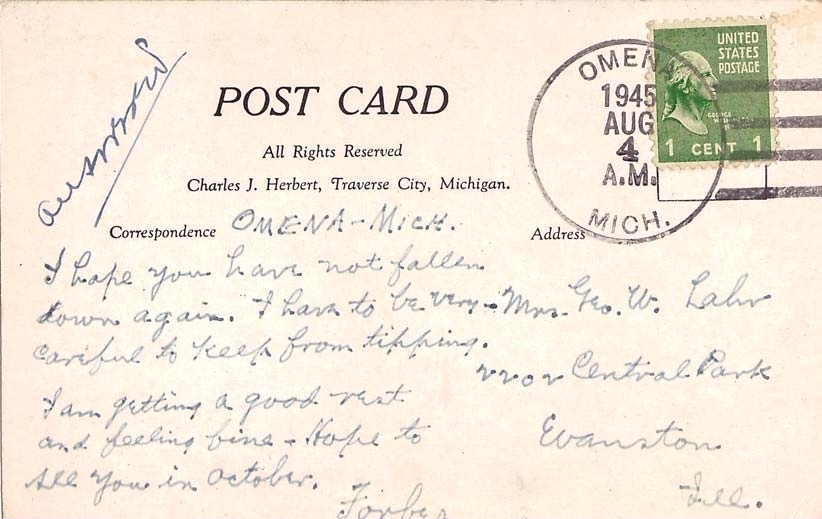 answered
POST CARD
All Rights Reserved
Charles J. Herbert, Traverse City, Michigan.
Correspondence OMENA-MICH.
I hope you have not fallen
down again. I have to be very-
careful to keep from tipping.
I am getting a good rest
and feeling fine - Hope to
see you in October.
Forbes
OMENA
1945
AUG
4
A.M.
MICH.
UNITED
STATES
POSTAGE
GEORGE
1 CENT 1
Address
Mrs. Geo. W. Lahr
2202 Central Park
Evanston
Ill.